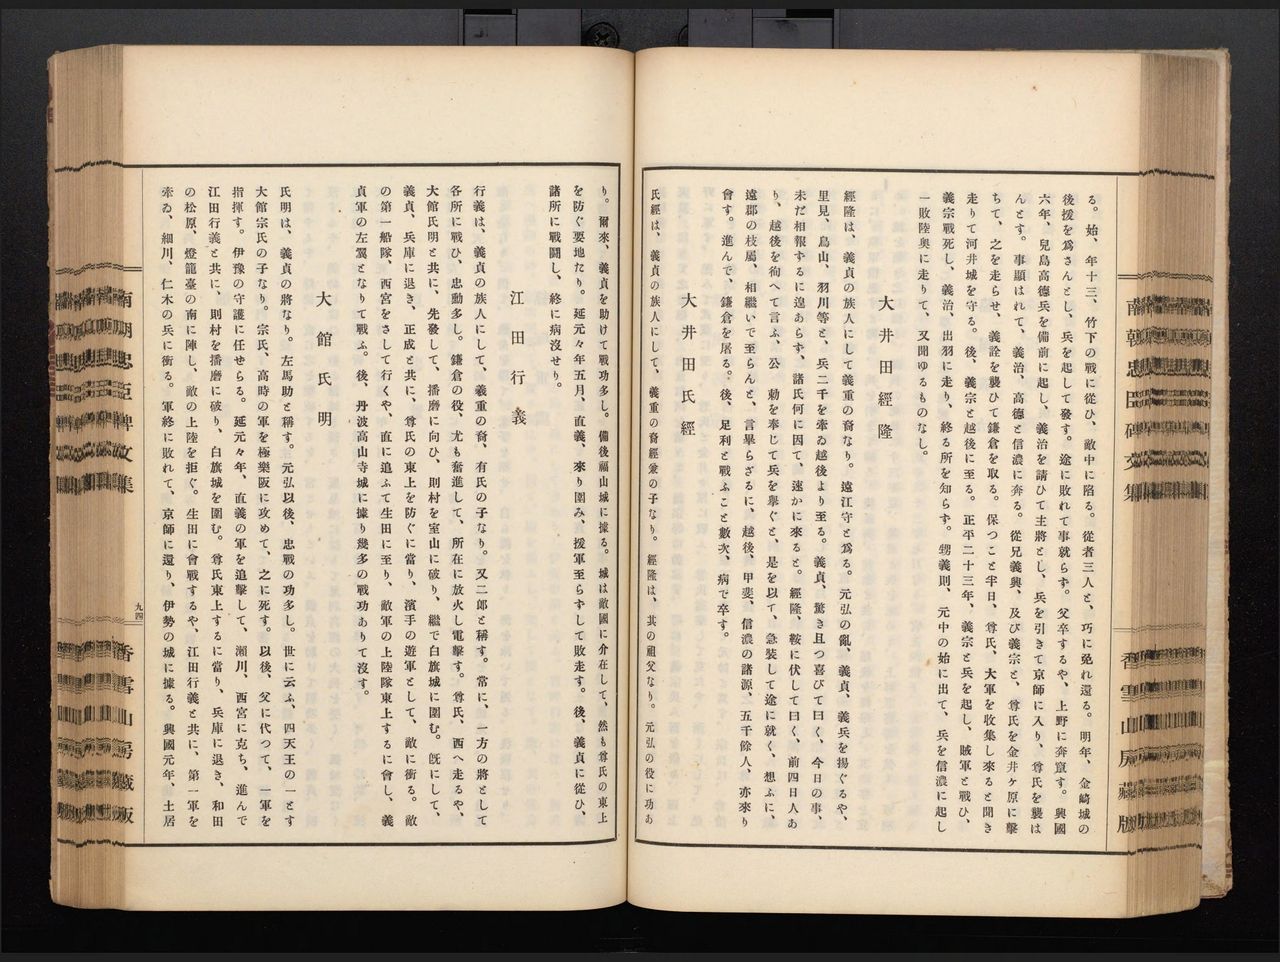 る。始、年十三、竹下の戰に從ひ、敵中に陷る。從者三人と、巧に免れ還る。明年、金崎城の
後援を爲さんとし、兵を起して發す。途に敗れて事就らず。父卒するや、上野に奔竄す。興國
六年、兒島高德兵を備前に起し、義治を請ひて主將とし、兵を引きて京師に入り、尊氏を襲は
んとす。事顯はれて、義治、高德と信濃に奔る。從兄義興、及び義宗と、尊氏を金井ヶ原に擊
ちて、之を走らせ、義詮を襲ひて鎌倉を取る。保つこと半日、尊氏、大軍を收集し來ると聞き
走りて河井城を守る。後、義宗と越後に至る。正平二十三年、義宗と兵を起し、賊軍と戰ひ、
義宗戰死し、義治、出羽に走り、終る所を知らず。甥義則、元中の始に出て、兵を信濃に起し
一敗陸奧に走りて、又聞ゆるものなし。
大井田經隆
經隆は、義貞の族人にして義重の裔なり。遠江守と爲る。元弘の亂、義貞、義兵を揚ぐるや、
里見、鳥山、羽川等と、兵二千を率ゐ越後より至る。義貞、驚き且つ喜びて曰く、今日の事、
未だ相報するに遑あらず、諸氏何に因て、速かに來ると。經隆、鞍に伏して曰く、前四日人あ
り、越後を徇へて言ふ、公、勅を奉じて兵を擧ぐと、是を以て、急裝して途に就く、想ふに、
遠郡の枝屬、相繼いで至らんと、言畢らざるに、越後、甲斐、信濃の諸源、五千餘人、亦來り
會す。進んで、鎌倉を屠る。後、足利と戰ふこと數次、病で卒す。
大井田氏經
氏經は、義貞の族人にして、義重の裔經兼の子なり。經隆は、其の祖父なり。元弘の役に功あ
り。爾來、義貞を助けて戰功多し。備後福山城に據る。城は敵國に介在して、然も尊氏の東上
を防ぐ要地たり。延元々年五月、直義、來り圍み、援軍至らずして敗走す。後、義貞に從ひ、
諸所に戰鬪し、終に病沒せり。
江田行義
行義は、義貞の族人にして、義重の裔、有氏の子なり。又二郎と稱す。常に、一方の將として
各所に戰ひ、忠勳多し。鎌倉の役、尤も奮進して、所在に放火し電擊す。尊氏、西へ走るや、
大館氏明と共に、先發して、播磨に向ひ、則村を室山に破り、繼で白旗城に圍む。旣にして、
義貞、兵庫に退き、正成と共に、尊氏の東上を防ぐに當り、濱手の遊軍として、敵に衝る。敵
の第一船隊、西宮をさして行くや、直に追ふて生田に至り、敵軍の上陸隊東上するに會し、義
貞軍の左翼となりて戰ふ。後、丹波高山寺城に據り幾多の戰功ありて沒す。
大館氏明
氏明は、義貞の將なり。左馬助と稱す。元弘以後、忠戰の功多し。世に云ふ、四天王の一とす
大館宗氏の子なり。宗氏、高時の軍を極樂阪に攻めて、之に死す。以後、父に代つて、一軍を
指揮す。伊豫の守護に任せらる。延元々年、直義の軍を追擊して、瀨川、西宮に克ち、進んで
江田行義と共に、則村を播磨に破り、白旗城を圍む。尊氏東上するに當り、兵庫に退き、和田
の松原、燈籠臺の南に陣し、敵の上陸を拒ぐ。生田に會戰するや、江田行義と共に、第一軍を
率ゐ、細川、仁木の兵に衝る。軍終に敗れて、京師に還り、伊勢の城に據る。興國元年、土居
九四